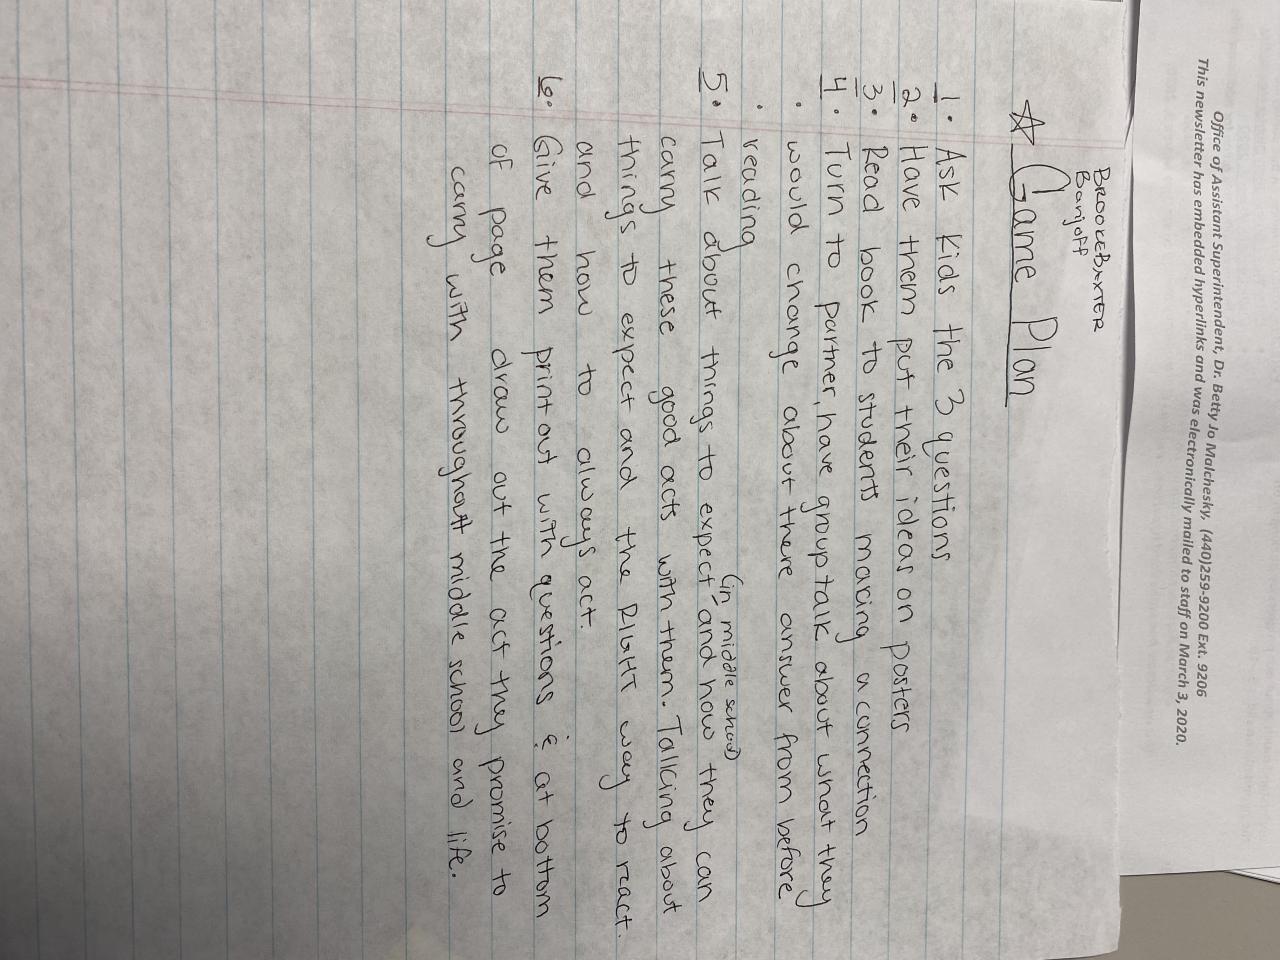 Office of Assistant Superintendent, Dr. Betty Jo Malchesky, (440)259-9200 Ext. 9206
This newsletter has embedded hyperlinks and was electronically mailed to staff on March 3, 2020.
BROOKE BAXTER
Banjoff
☆ Game Plan
1. Ask kids the 3 questions
2. Have them put their ideas on posters
3. Read book to students making a connection
4. Turn to partner, have group talk about what they
• would change about there answer from before
• reading
(in middle school)
5. Talk about things to expect and how they can
carry these good acts with them. Talking about
things to expect and the RIGHT way to react
and how to always act.
6. Give them print out with questions & at bottom
of page draw out the act they promise to
carry with throughout middle school and life.